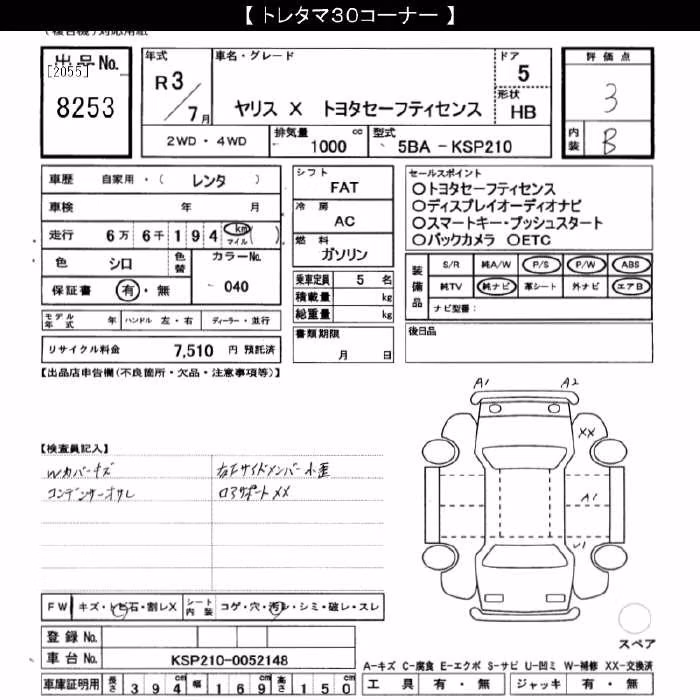 【 トレタマ30コーナー 】
(複合機)対応用紙
出品No.
[2055]
8253
年式
R3/7月
車名・グレード
ヤリス X トヨタセーフティセンス
ドア
5
形状
HB
評価点
3
内装
B
2WD・4WD
排気量 1000 cc
型式 5BA-KSP210
車歴 自家用・( レンタ )
車検 年 月
走行 6万 6千 1 9 4 km マイル ( )
色 シロ 色替
カラーNo.
040
保証書 有・無
モデル年式 年 ハンドル 左・右 ディーラー・並行
リサイクル料金 7,510 円 預託済
シフト
FAT
冷房
AC
燃料
ガソリン
乗車定員 5 名
積載量 kg
総重量 kg
書類期限
月 日
セールスポイント
○トヨタセーフティセンス
○ディスプレイオーディオナビ
○スマートキー・プッシュスタート
○バックカメラ ○ETC
装備品
S/R 純A/W P/S P/W ABS
純TV 純ナビ 革シート 外ナビ エアB
ナビ型番:
後日品
【出品店申告欄(不良箇所・欠品・注意事項等)】
【検査員記入】
Wカバーキズ
コンデンサーオサレ
右Fサイドメンバー小歪
ロアサポートXX
A1
A2
XX
A1
FW キズ・トビ石・割レX
シート内装 コゲ・穴・汚レ・シミ・破レ・スレ
登録No.
車台No. KSP210-0052148
車庫証明用 長さ 394cm 幅 169cm 高さ 150cm
スペア
A-キズ C-腐食 E-エクボ S-サビ U-凹ミ W-補修 XX-交換済
工具 有・無 ジャッキ 有・無